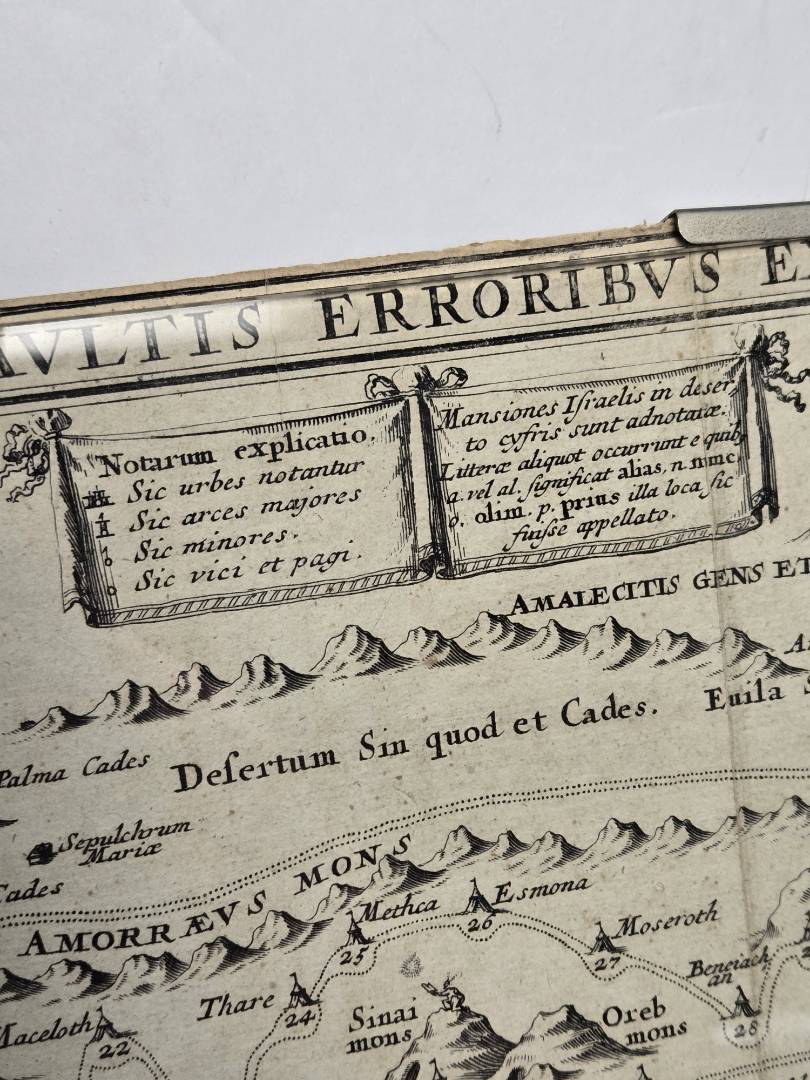 MVLTIS ERRORIBVS
Notarum explicatio.
Sic urbes notantur
Sic arces majores
Sic minores.
Sic vici et pagi.
Mansiones Iſraelis in deser
to cyfris sunt adnotatæ.
Litteræ aliquot occurrunt e quib9
a. vel al. ſignificat alias, n. nunc
o. olim. p. prius illa loca ſic
fuiſse appellato.
AMALECITIS GENS ET
Deſertum Sin quod et Cades.
Euila
Palma Cades
Sepulchrum
Mariæ
Cades
AMORRÆVS MONS
Methca
25
Esmona
26
Moseroth
27
Beneiach
an
28
Thare
24
Maceloth
22
Sinai
mons
Oreb
mons